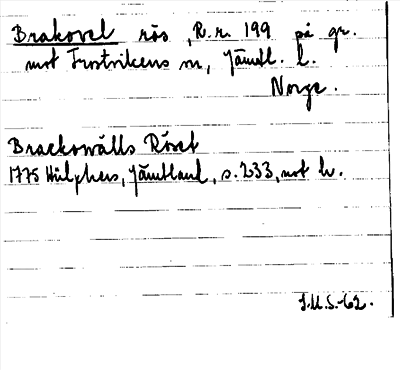 Brakovel rös, R.r. 199 på gr.
mot Frostvikens sn, Jämtl. l.
Norge.
Brackowålls Röset
1775 Hülphers, Jämtland, s. 233, not b.
J.M.S.-62.